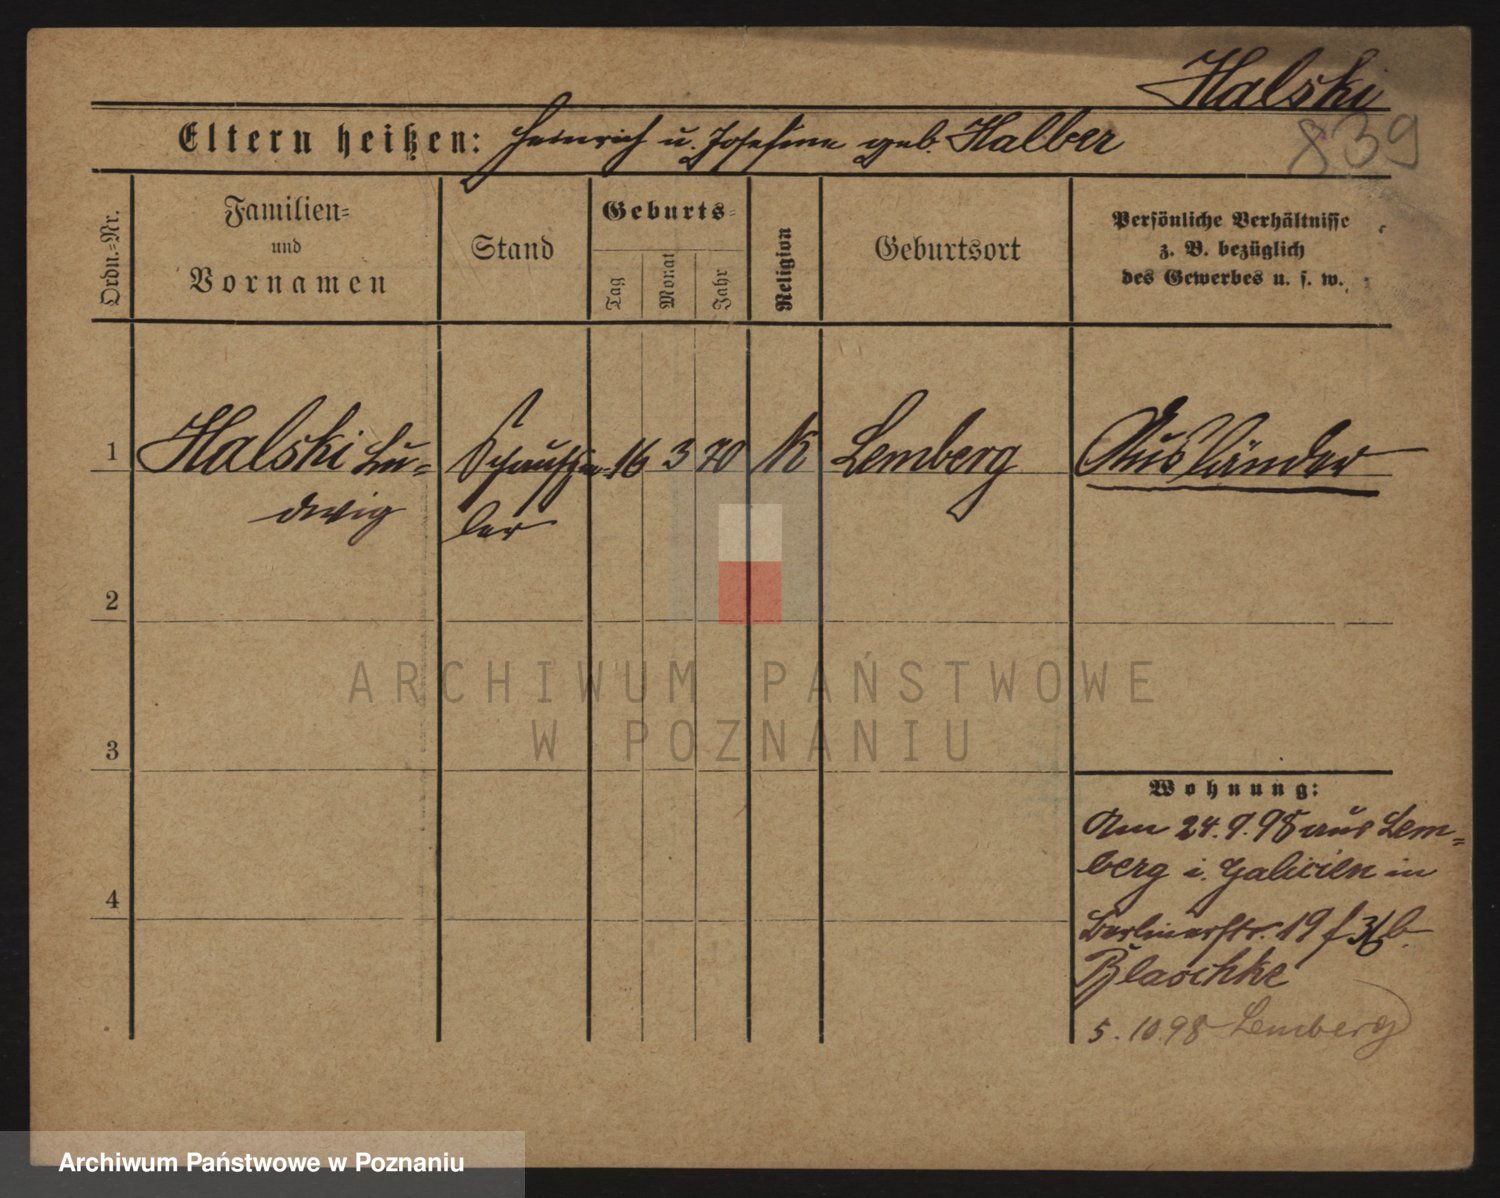 Halski
839
Eltern heißen: Heinrich u. Josefine geb. Halber
Ordn.=Nr.
Familien=
und
Vornamen
Stand
Geburts=
Tag
Monat
Jahr
Religion
Geburtsort
Persönliche Verhältnisse
z. B. bezüglich
des Gewerbes u. s. w.
1 Halski Lu= Schauspie= 16 3 70 K Lemberg Ausländer
dwig ler
2
3
4
Wohnung:
Am 24.9.98 aus Lem=
berg i. Galicien in
Berlinerstr. 19 b.
Blaschke
5.10.98 Lemberg
ARCHIWUM PAŃSTWOWE
W POZNANIU
Archiwum Państwowe w Poznaniu